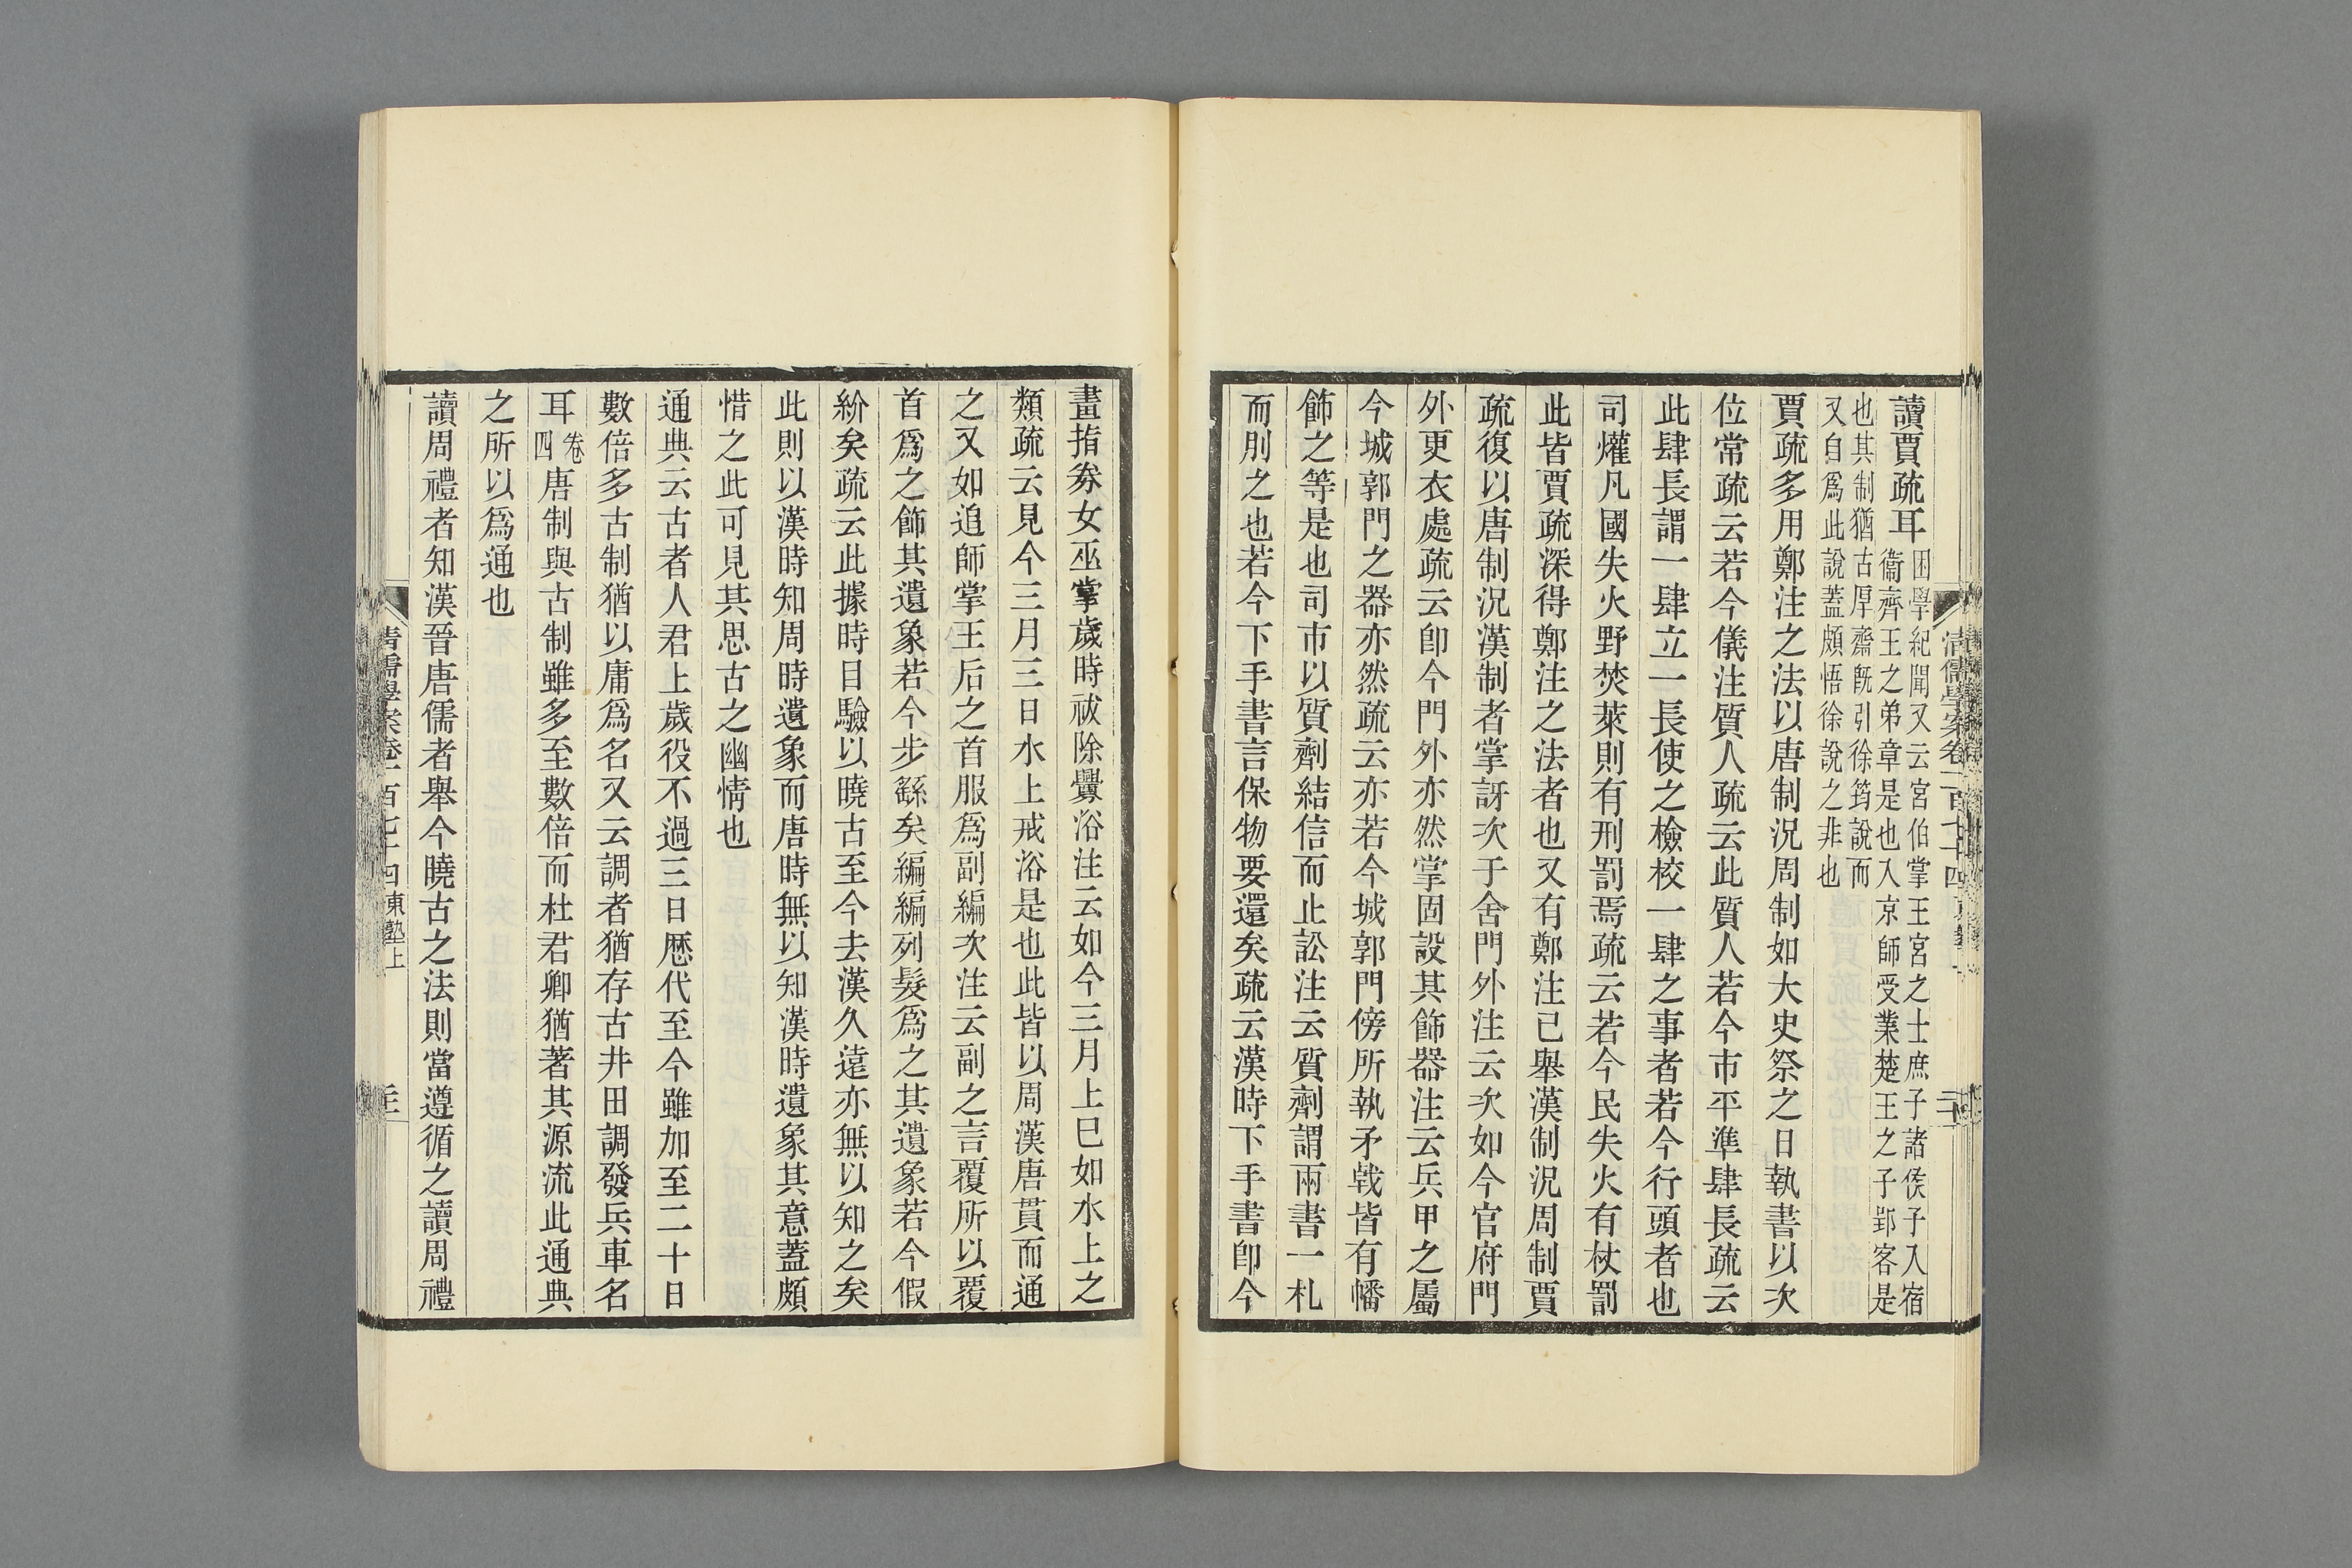 讀賈疏耳困學紀聞又云宮伯掌王宮之士庶子諸侯子入宿
衞齊王之弟章是也入京師受業楚王之子郢客是
也其制猶古厚齋旣引徐筠說而
又自爲此說蓋頗悟徐說之非也
賈疏多用鄭注之法以唐制況周制如大史祭之日執書以次
位常疏云若今儀注質人疏云此質人若今市平準肆長疏云
此肆長謂一肆立一長使之檢校一肆之事者若今行頭者也
司爟凡國失火野焚萊則有刑罰焉疏云若今民失火有杖罰
此皆賈疏深得鄭注之法者也又有鄭注已舉漢制況周制賈
疏復以唐制況漢制者掌訝次于舍門外注云次如今官府門
外更衣處疏云卽今門外亦然掌固設其飾器注云兵甲之屬
今城郭門之器亦然疏云亦若今城郭門傍所執矛戟皆有幡
飾之等是也司市以質劑結信而止訟注云質劑謂兩書一札
而別之也若今下手書言保物要還矣疏云漢時下手書卽今
畫指券女巫掌歲時祓除釁浴注云如今三月上巳如水上之
類疏云見今三月三日水上戒浴是也此皆以周漢唐貫而通
之又如追師掌王后之首服爲副編次注云副之言覆所以覆
首爲之飾其遺象若今步繇矣編編列髮爲之其遺象若今假
紒矣疏云此據時目驗以曉古至今去漢久遠亦無以知之矣
此則以漢時知周時遺象而唐時無以知漢時遺象其意蓋頗
惜之此可見其思古之幽情也
通典云古者人君上歲役不過三日歷代至今雖加至二十日
數倍多古制猶以庸爲名又云調者猶存古井田調發兵車名
耳卷四唐制與古制雖多至數倍而杜君卿猶著其源流此通典
之所以爲通也
讀周禮者知漢晉唐儒者舉今曉古之法則當遵循之讀周禮
清儒學案卷一百七十四東塾上